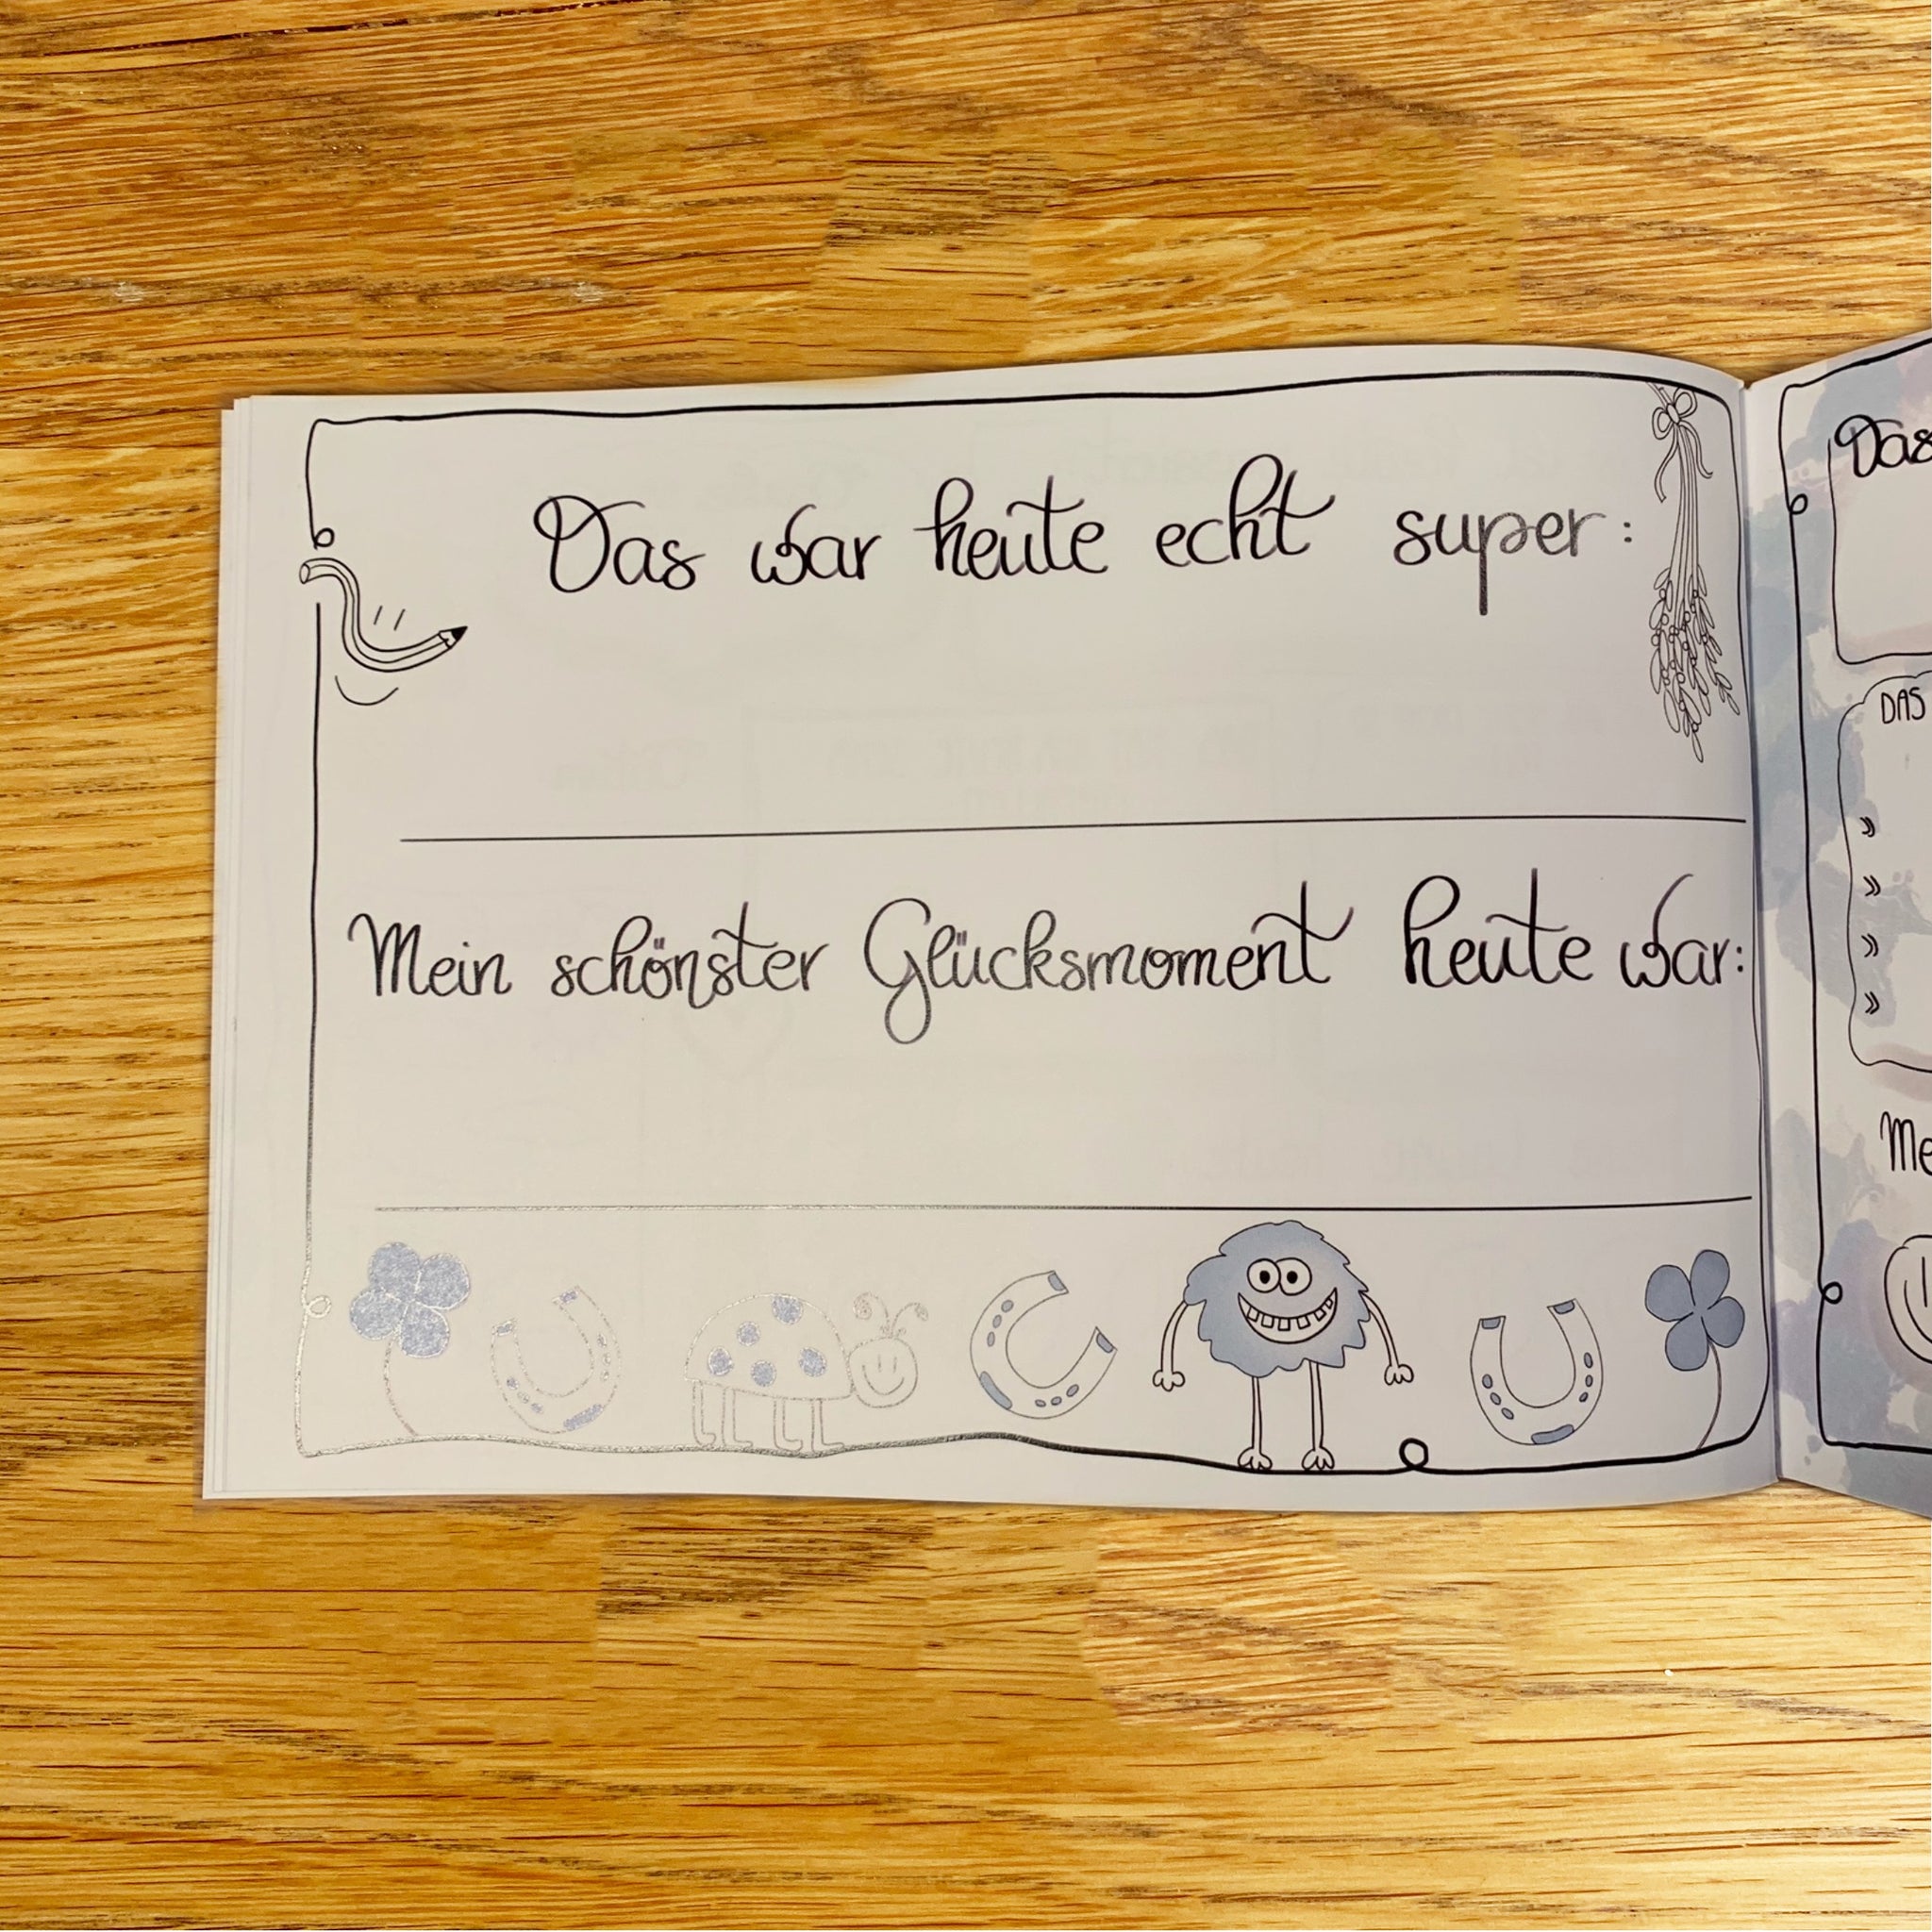 Das war heute echt super:
Mein schönster Glücksmoment heute war:
Das
DAS